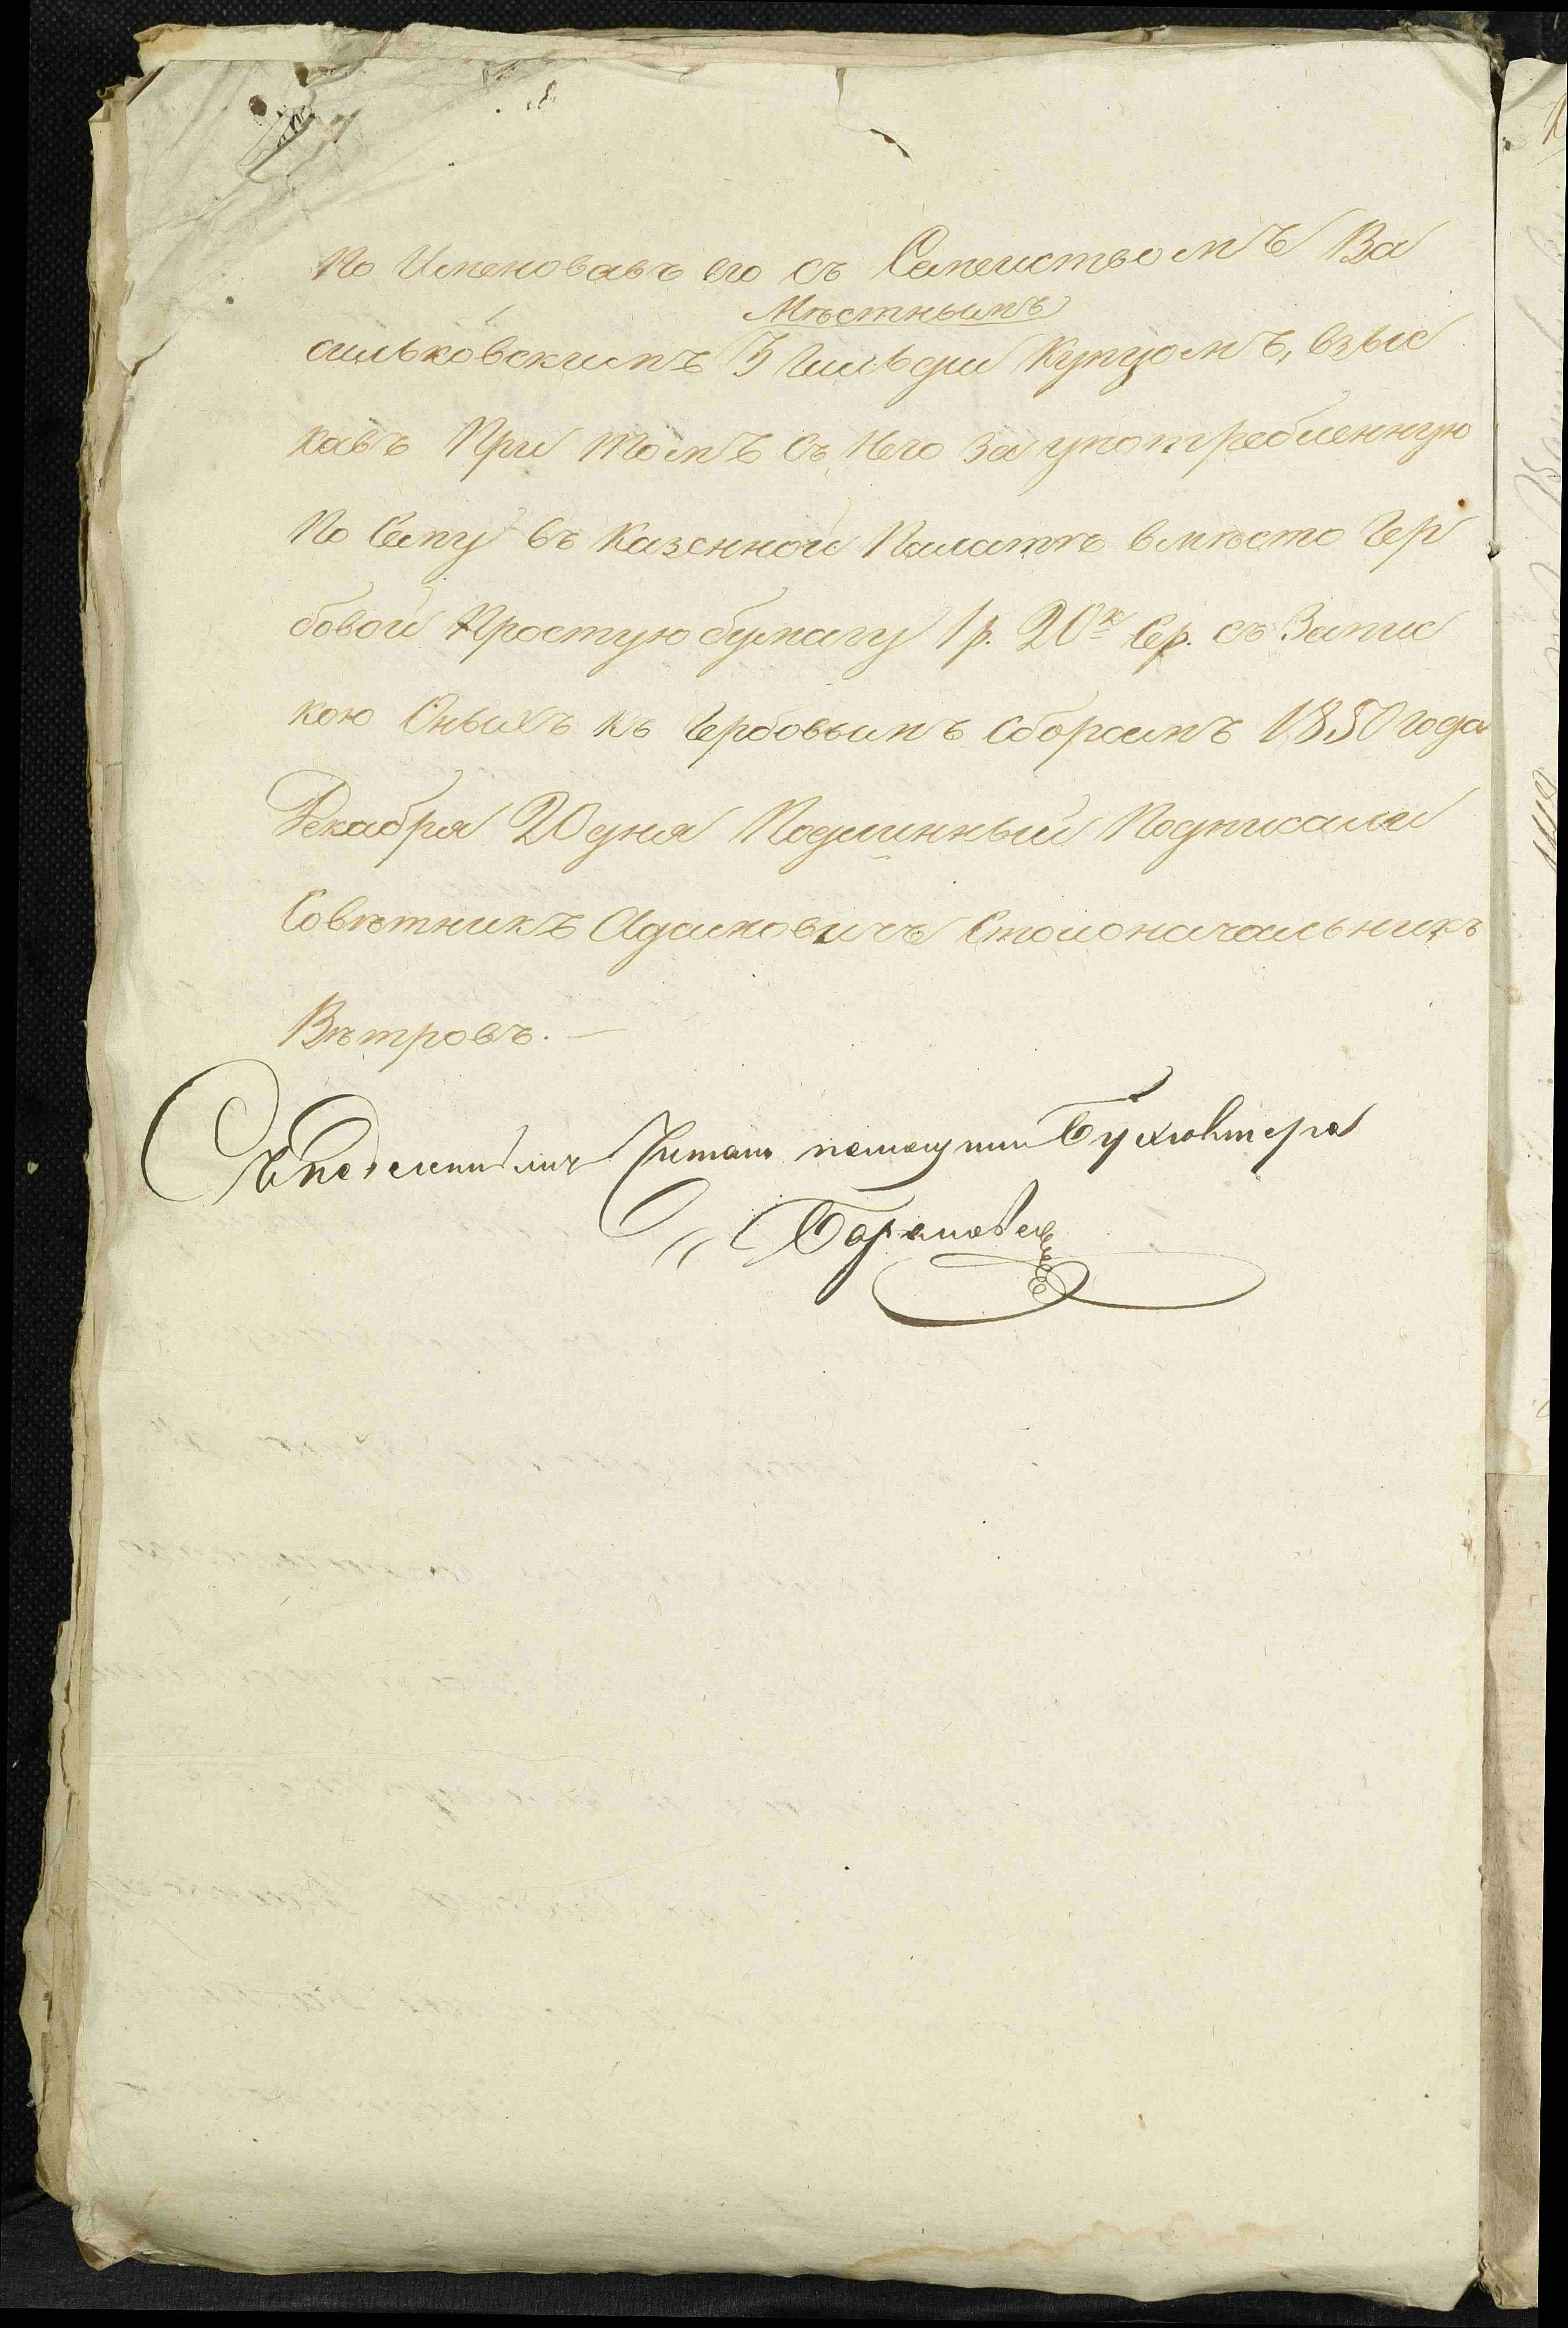 по Именовавъ его съ Семействомъ Ва
Мѣстнымъ
сильковскимъ 3 Гильдіи Купцомъ, взыс
кавъ При томъ съ Него За употребленную
По Сему въ Казенной Палатѣ вмѣсто Гер
бовой Простую бумагу 1 р. 20 к Сер. съ Запис
кою Оныхъ къ Гербовымъ сборамъ 1850 года
Декабря 20 дня Подлинный Подписали
Совѣтникъ Адамовичъ Столоначальникъ
Вѣтровъ. —
Съ подлиннымъ Читалъ помощникъ Бухгалтера